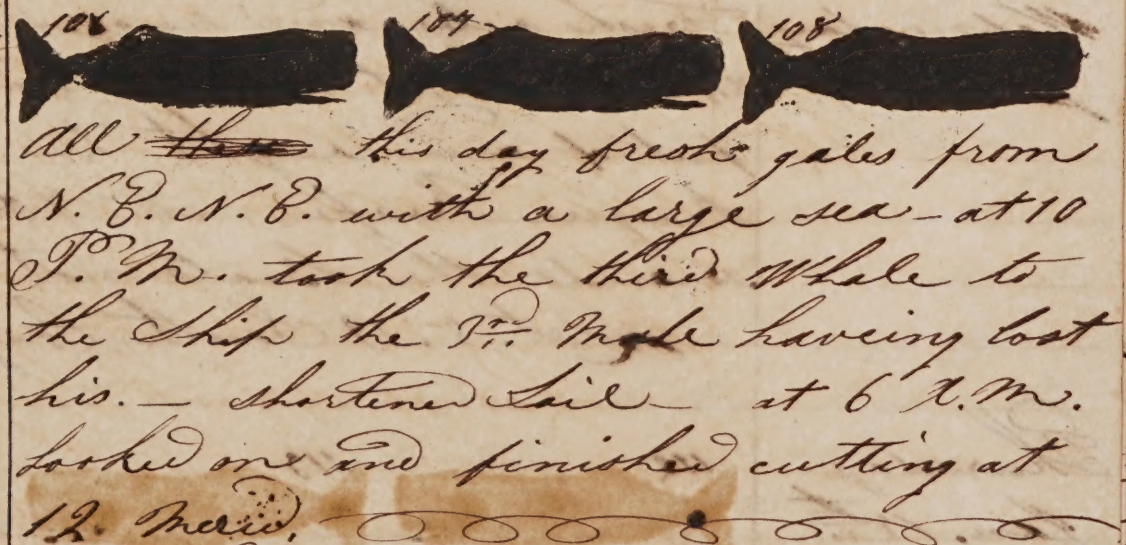 106 107 108
All this day fresh gales from
N. E. N. E. with a large sea - at 10
P. M. took the third Whale to
the Ship the 3rd Mate haveing lost
his. - shortened Sail - at 6 A. M.
hooked on and finished cutting at
12. Merid.